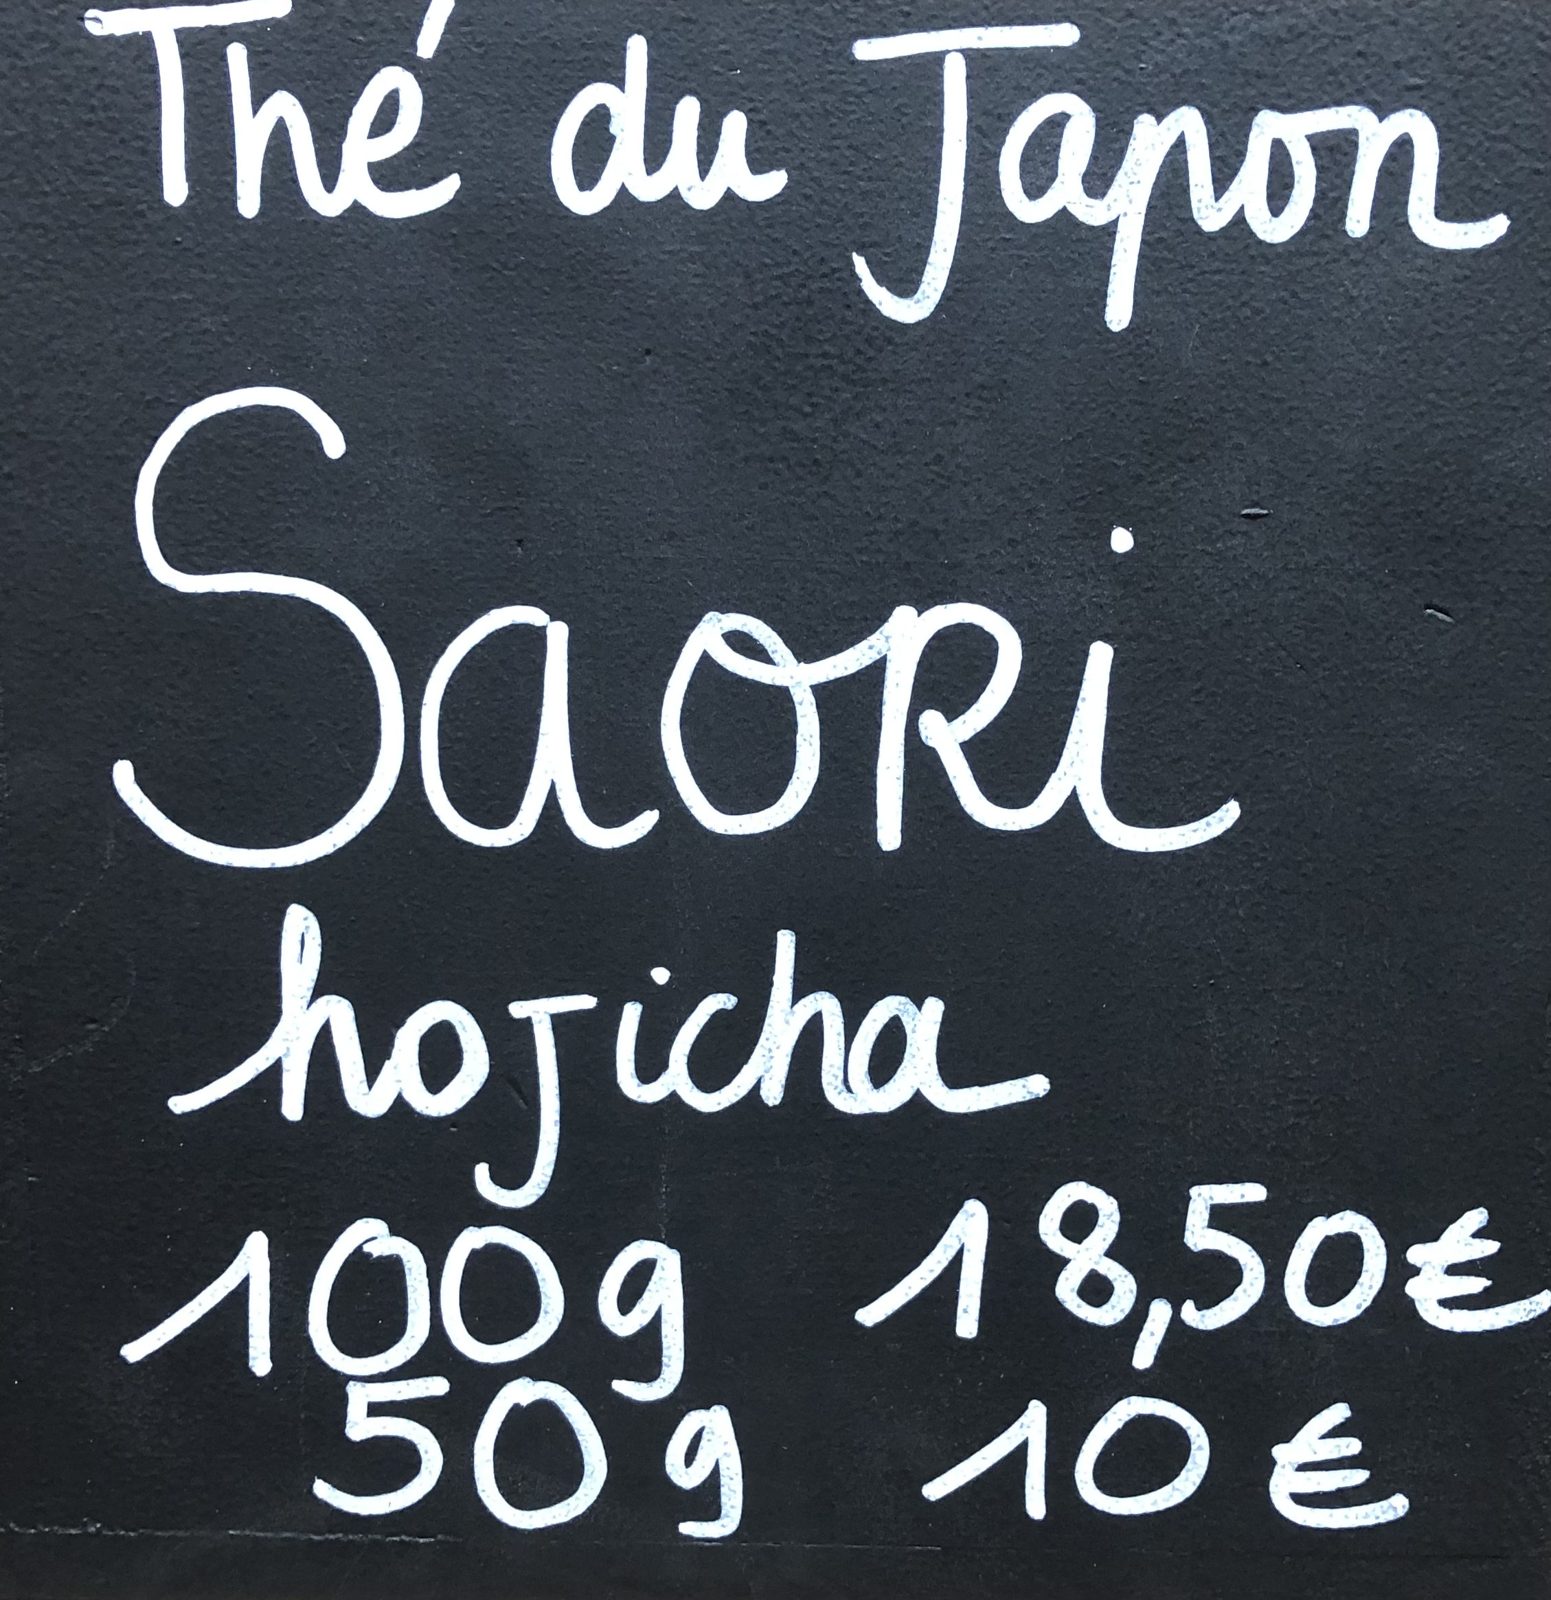 Thé du Japon
Saori
hojicha
100g 18,50€
50g 10€